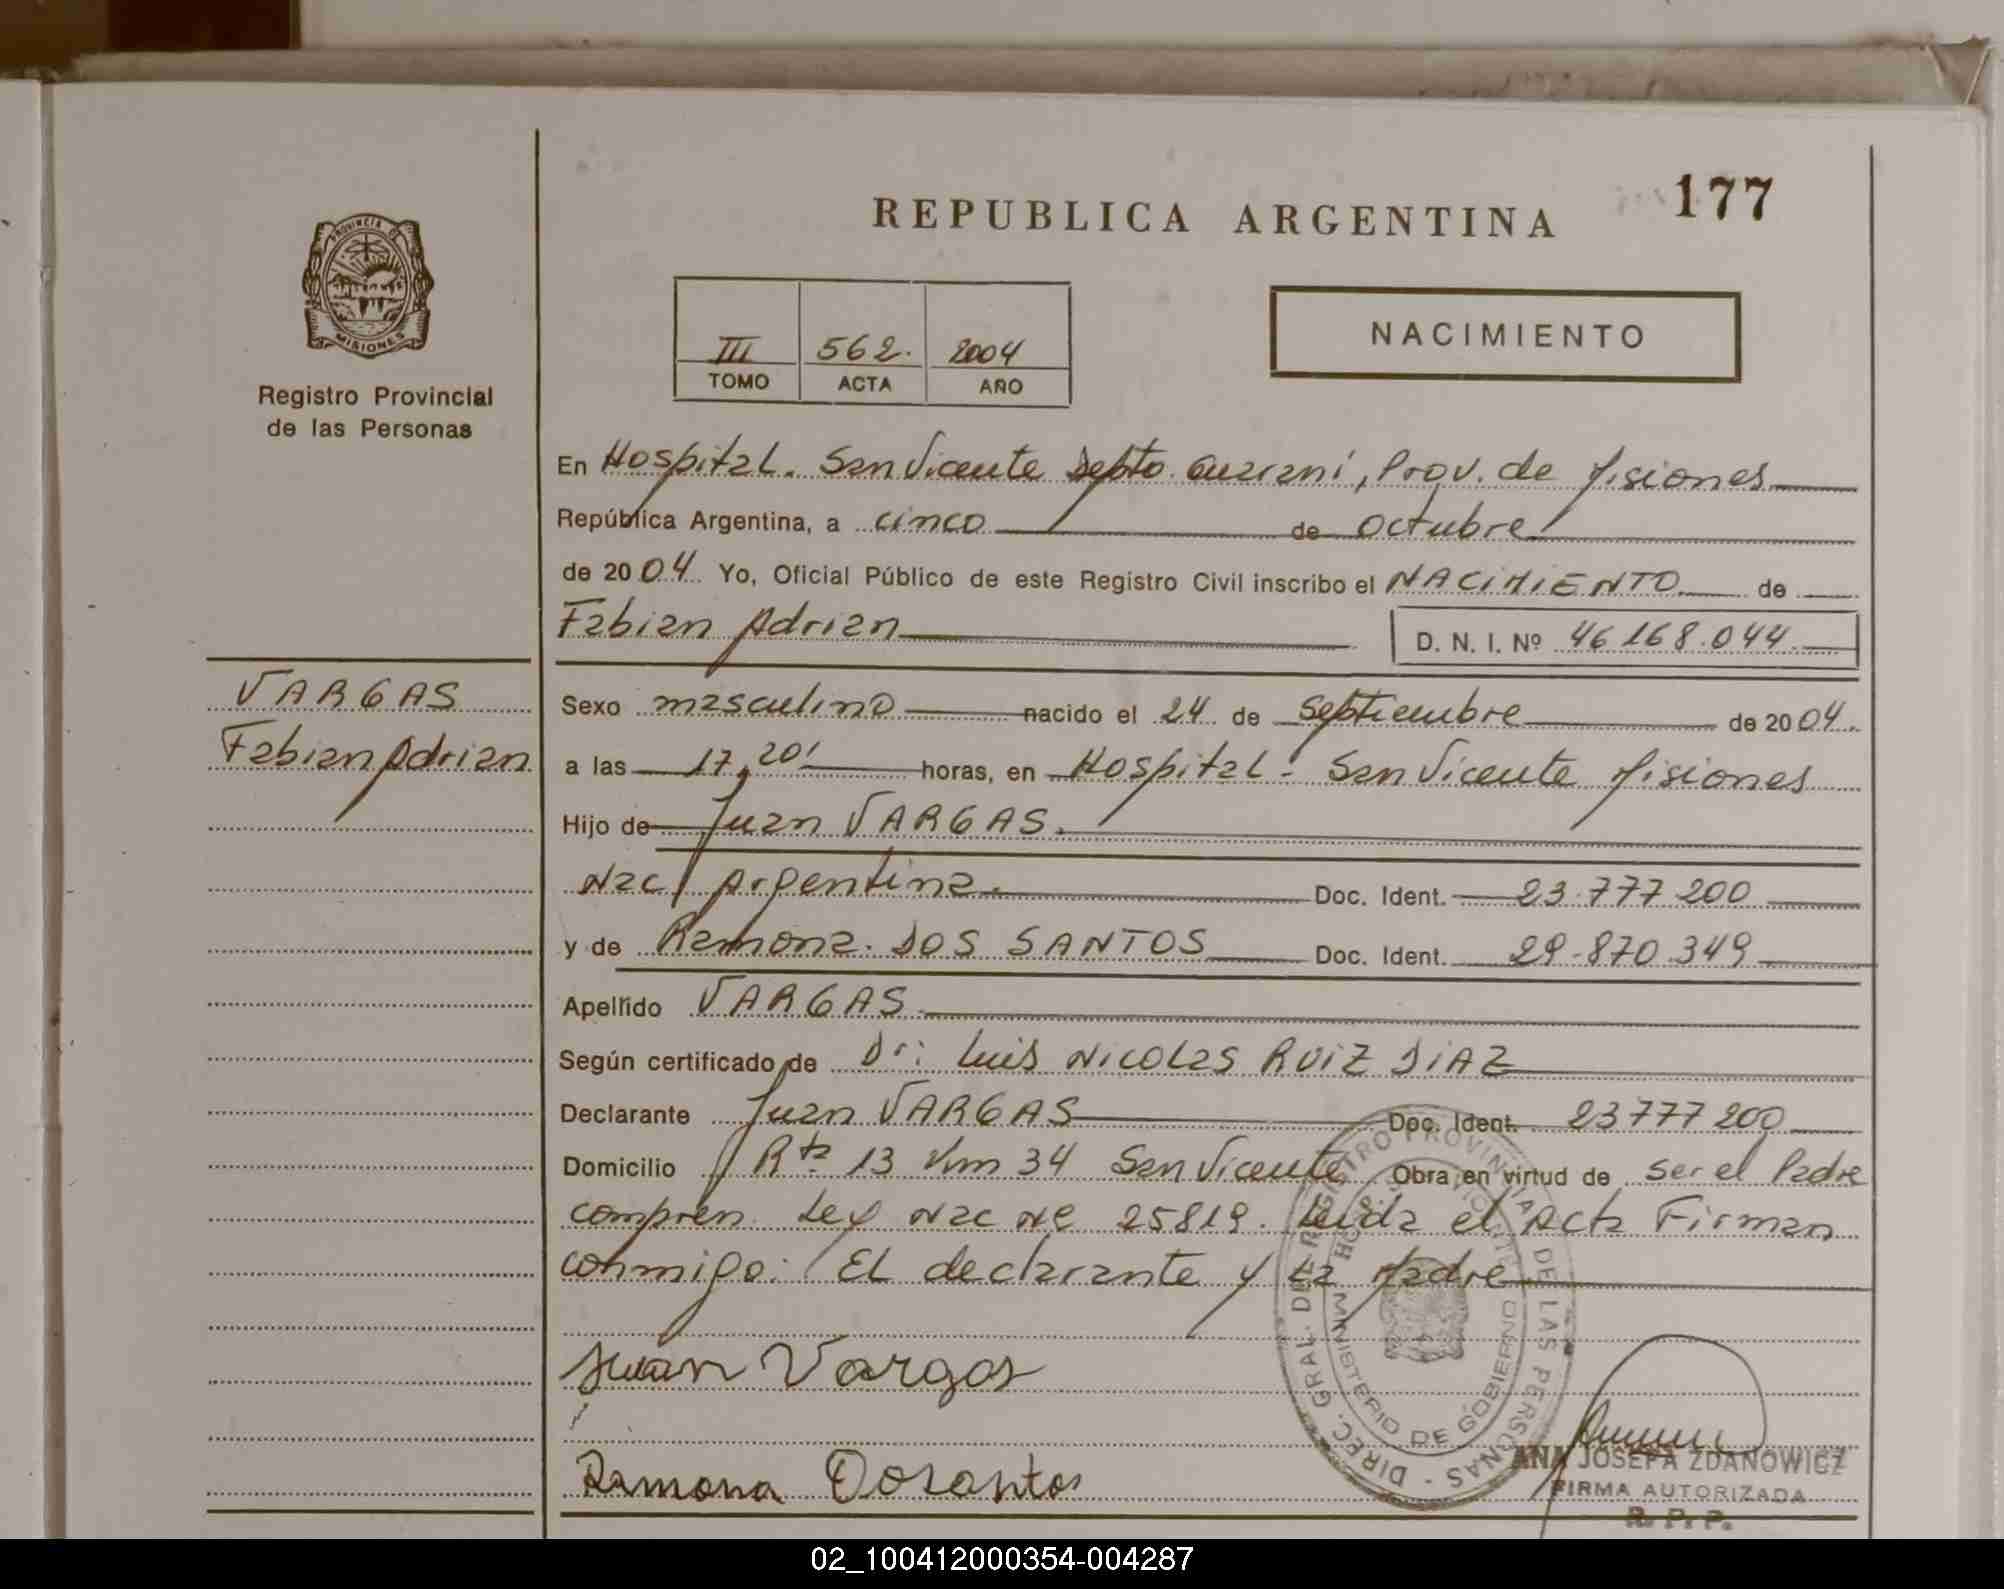 177
REPUBLICA ARGENTINA
PROVINCIA DE
MISIONES
Registro Provincial
de las Personas
III 562. 2004
TOMO ACTA AÑO
NACIMIENTO
En Hospital. San Vicente Depto. Guarani, Prov. de Misiones
República Argentina, a cinco de octubre
de 2004 Yo, Oficial Público de este Registro Civil inscribo el NACIMIENTO de
Fabian Adrian D. N. I. Nº 46168.044
VARGAS
Fabian Adrian
Sexo masculino nacido el 24 de Septiembre de 2004.
a las 17,20' horas, en Hospital - San Vicente Misiones
Hijo de Juan VARGAS.
Nac/ Argentina. Doc. Ident. 23.777 200
y de Ramona. DOS SANTOS Doc. Ident. 29.870.349
Apellido VARGAS
Según certificado de Dr: Luis NICOLAS RUIZ DIAZ
Declarante Juan VARGAS Doc. Ident. 23777200
Domicilio Rta 13 Km 34 San Vicente Obra en virtud de ser el Padre
compren Ley Nac Nº 25819. Leida el Acta Firman
conmigo: El declarante y La Madre
Juan Vargas
Ramona Dosantos
DIREC. GRAL. DEL REGISTRO PROVINCIAL DE LAS PERSONAS -
MINISTERIO DE GOBIERNO
ANA JOSEFA ZDANOWICZ
FIRMA AUTORIZADA
R. P. P.
02_100412000354-004287